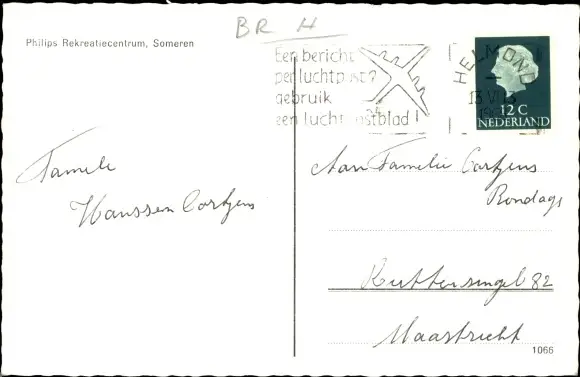 BR H
Philips Rekreatiecentrum, Someren
Een bericht
per luchtpost?
gebruik
een luchtpostblad!
HELMOND
13 VI
12 C
NEDERLAND
Familie
Hanssen Cortjens
Aan Familie Cortjens
Rondags
Ruttensingel 82
Maastricht
1066